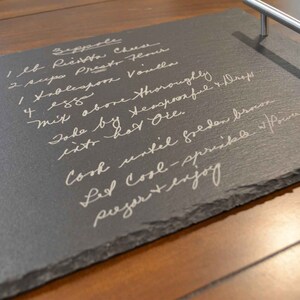 Zeppole
1 lb Ricotta Cheese
2 cups Presto Flour
1 tablespoon Vanilla
4 eggs
Mix above thoroughly
Take by teaspoonful & Drop
into hot Oil.
Cook until golden brown
Let Cool - sprinkle w/Powder
sugar & enjoy